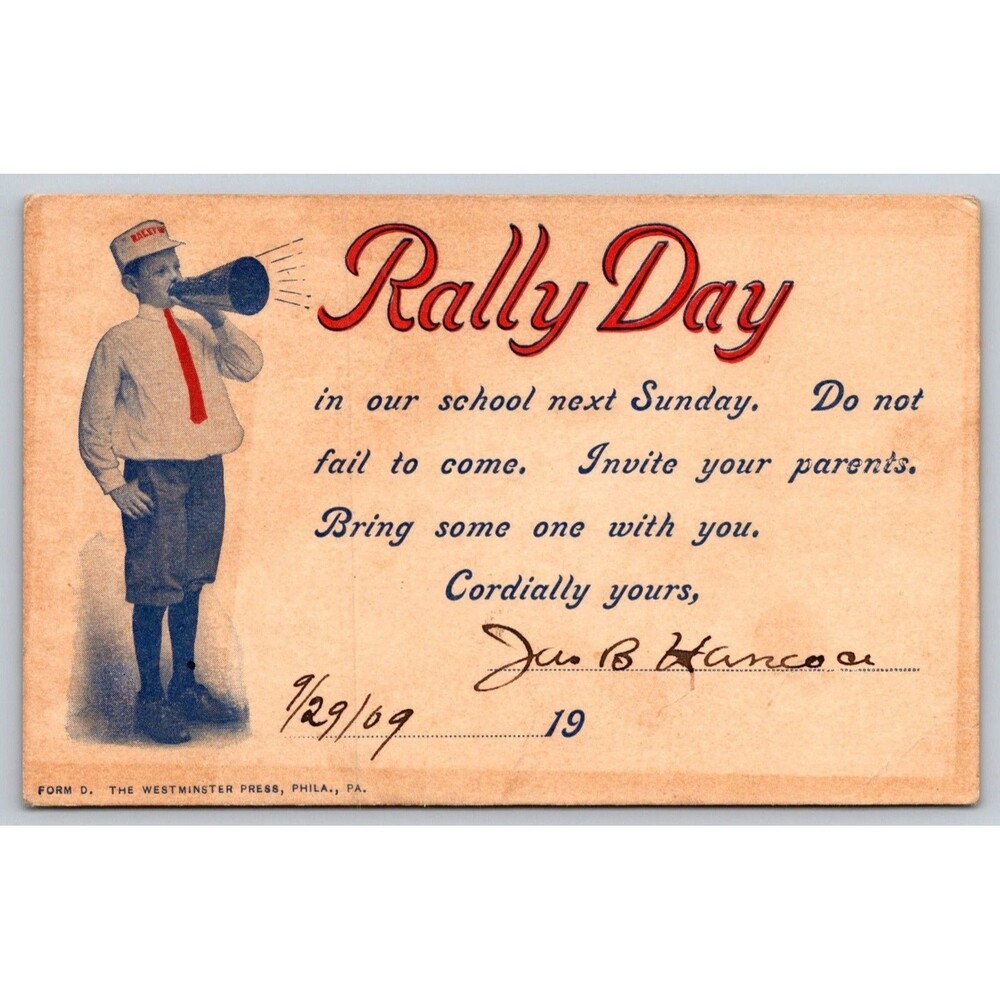 Rally Day
in our school next Sunday. Do not
fail to come. Invite your parents.
Bring some one with you.
Cordially yours,
Jas B Hancock
9/29/09 19
FORM D. THE WESTMINSTER PRESS, PHILA., PA.